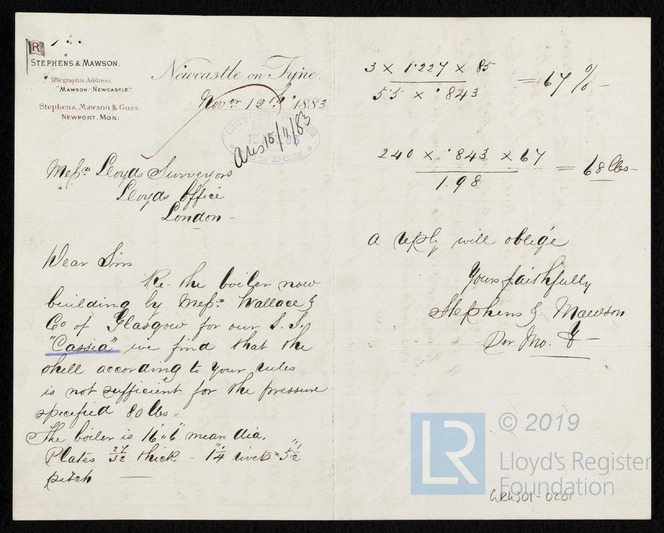 R
STEPHENS & MAWSON.
Telegraphic Address,
"MAWSON-NEWCASTLE"
Stephens, Mawson & Goss.
NEWPORT, MON:
Newcastle on Tyne.
Novr 12th 1883
Ans 15/11/83
LONDON
Messrs Lloyds Surveyors
Lloyds Office
London
Dear Sirs
Re the boiler now
building by Messrs Wallace &
Co of Glasgow for our S.S.
"Cassia" we find that the
shell according to your rules
is not sufficient for the pressure
specified 80 lbs.
The boiler is 16' 6" mean dia.
Plates 27/32 thick - 1 1/4" rivets × 5 1/2"
pitch
3 × 1.227 × 85
5.5 × .843
= 67%
240 × .843 × 67
198
= 68 lbs
a reply will oblige
Yours faithfully
Stephens & Mawson
© 2019
LR
Lloyd's Register
Foundation